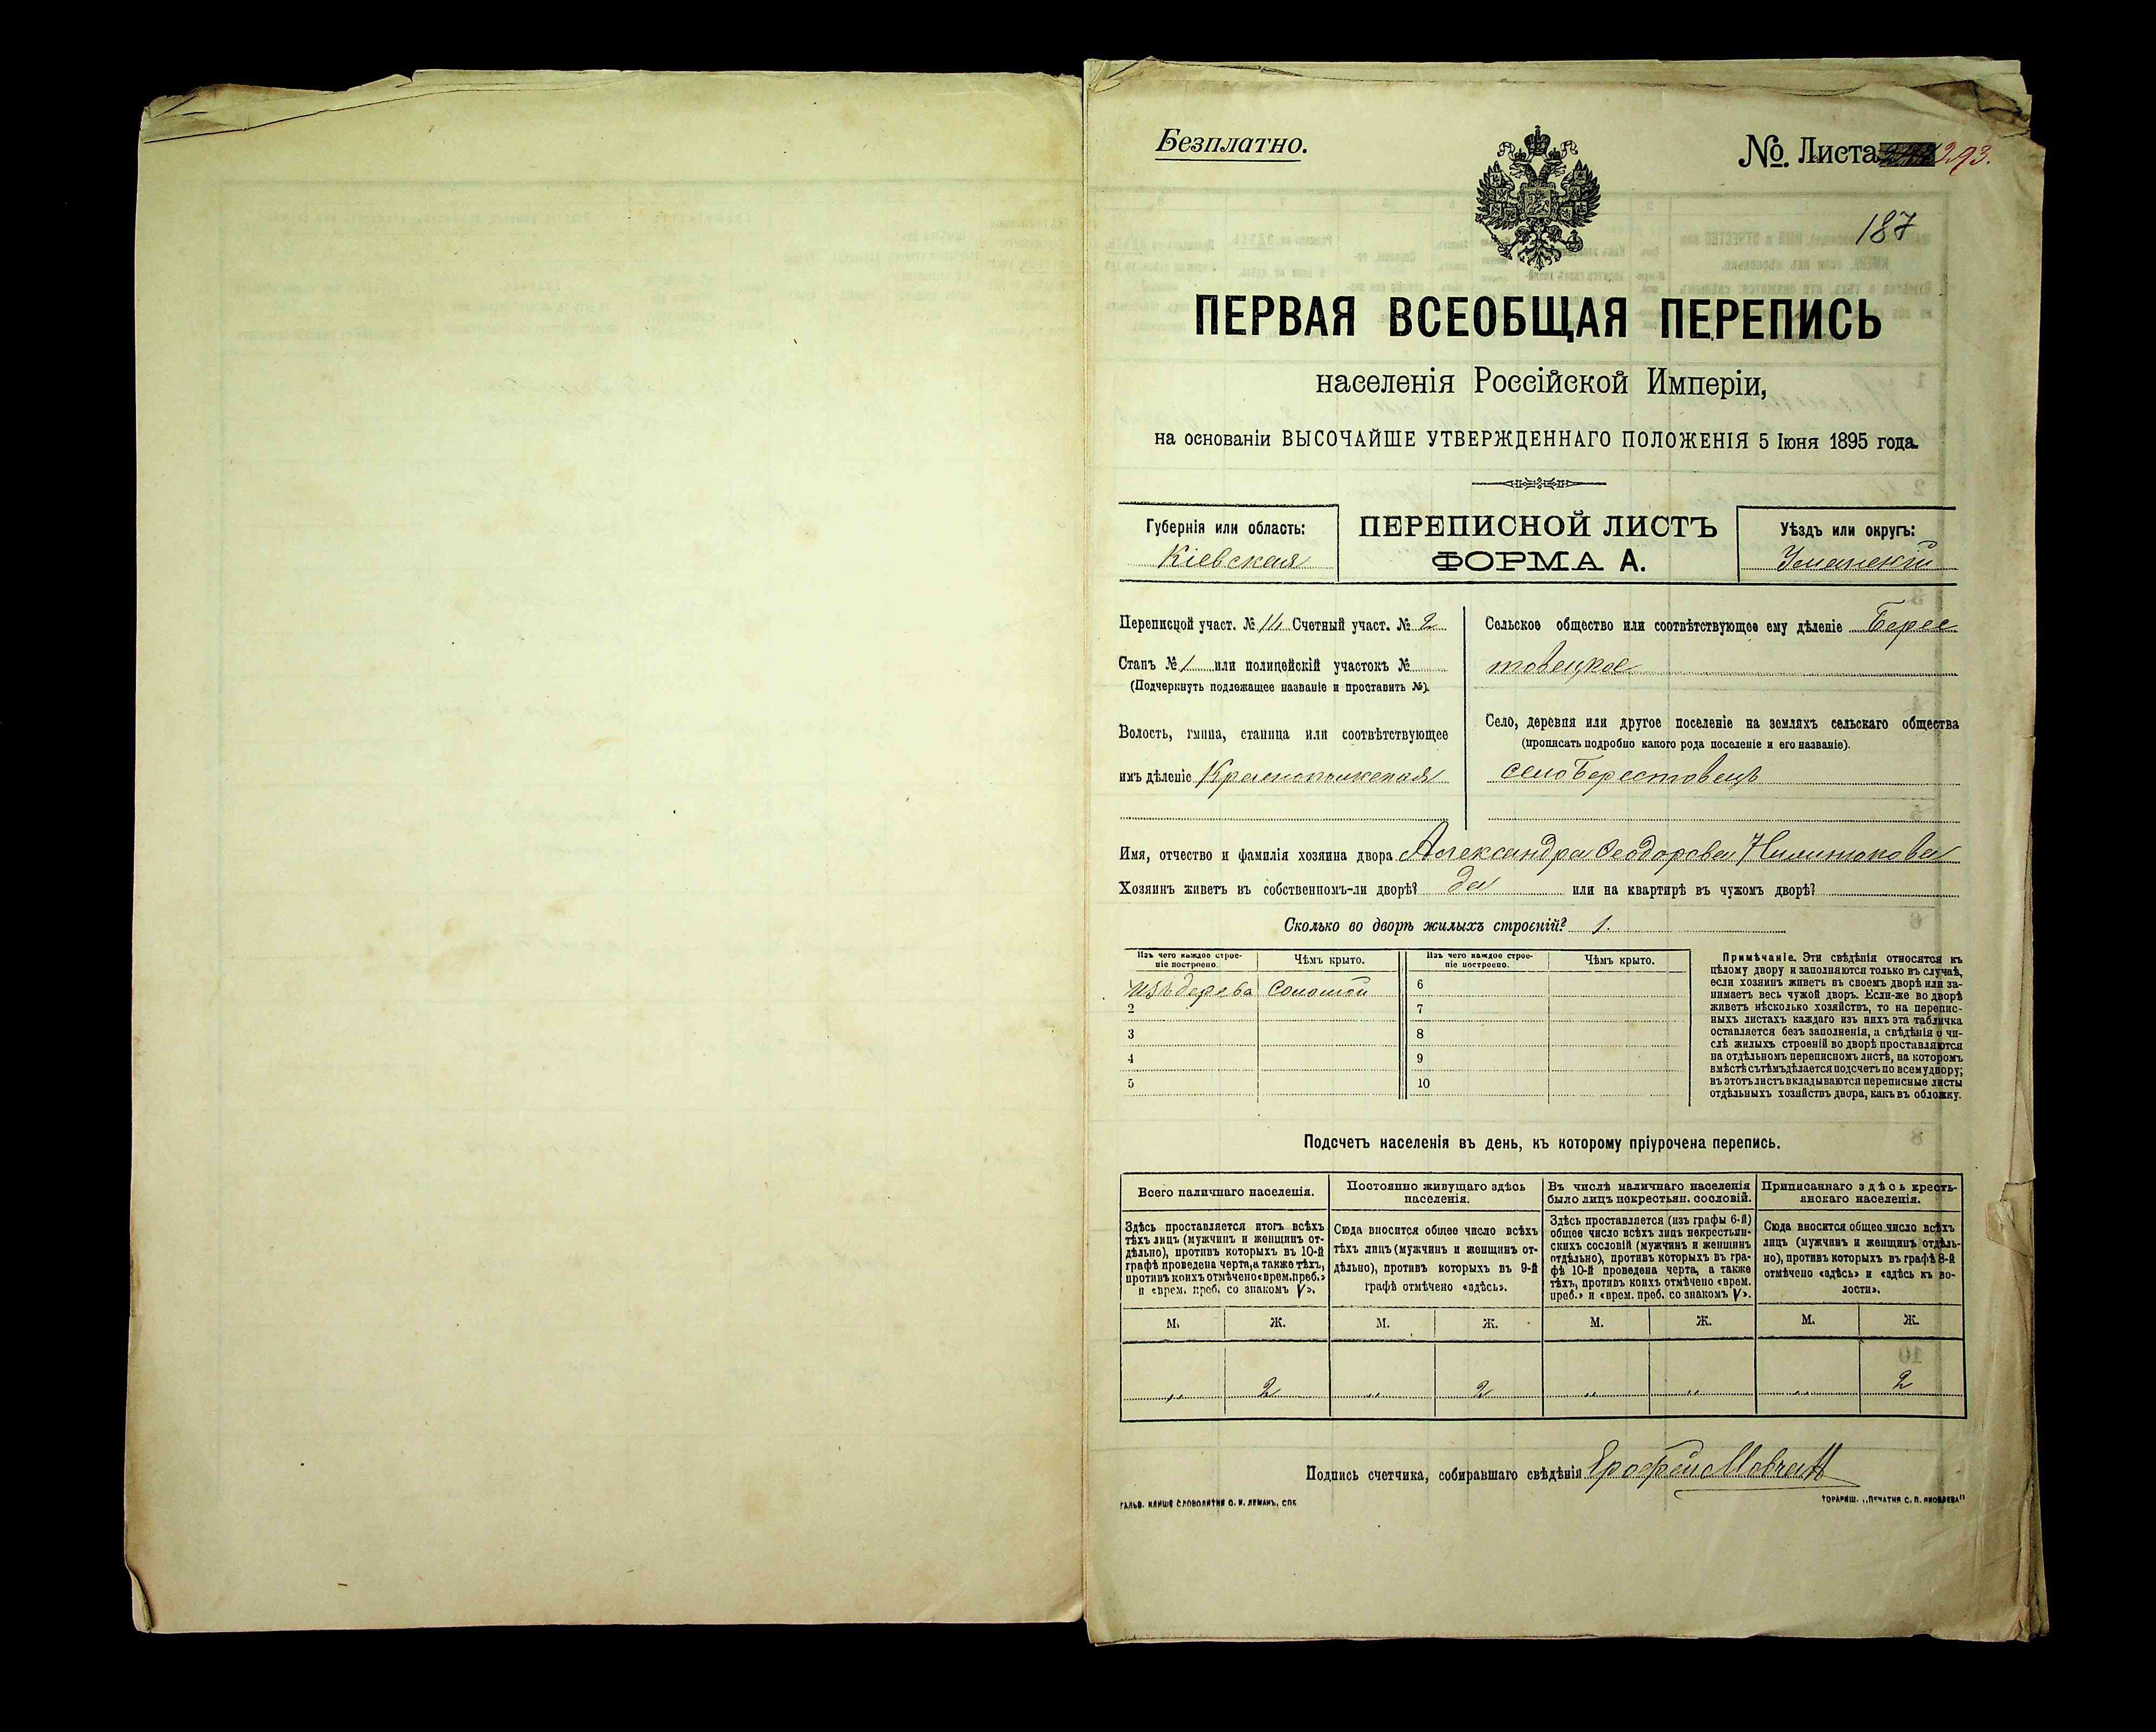 Безплатно.
№. Листа 293.
187
ПЕРВАЯ ВСЕОБЩАЯ ПЕРЕПИСЬ
населенія Россійской Имперіи,
на основаніи ВЫСОЧАЙШЕ УТВЕРЖДЕННАГО ПОЛОЖЕНІЯ 5 Іюня 1895 года.
Губернія или область:
Кіевская
ПЕРЕПИСНОЙ ЛИСТЪ
ФОРМА А.
Уѣздъ или округъ:
Уманскій
Переписной участ. № 14 Счетный участ. № 2
Станъ № 1 или полицейскій участокъ №
(Подчеркнуть подлежащее названіе и проставить №).
Волость, гмина, станица или соотвѣтствующее
имъ дѣленіе Краснопольская
Сельское общество или соотвѣтствующее ему дѣленіе Берес
товецкое
Село, деревня или другое поселеніе на земляхъ сельскаго общества
(прописать подробно какого рода поселеніе и его названіе).
село Берестовецъ
Имя, отчество и фамилія хозяина двора Александра Феодорова
Хозяинъ живетъ въ собственномъ-ли дворѣ? да или на квартирѣ въ чужомъ дворѣ?
Сколько во дворѣ жилыхъ строеній? 1.
Изъ чего каждое строе-
ніе построено.
Чѣмъ крыто.
Изъ чего каждое строе-
ніе построено.
Чѣмъ крыто.
изъ дерева соломой 6
2 7
3 8
4 9
5 10
Примѣчаніе. Эти свѣдѣнія относятся къ
цѣлому двору и заполняются только въ случаѣ,
если хозяинъ живетъ въ своемъ дворѣ или за-
нимаетъ весь чужой дворъ. Если-же во дворѣ
живетъ нѣсколько хозяйствъ, то на перепис-
ныхъ листахъ каждаго изъ нихъ эта табличка
оставляется безъ заполненія, а свѣдѣнія о чи-
слѣ жилыхъ строеній во дворѣ проставляются
на отдѣльномъ переписномъ листѣ, на которомъ
вмѣстѣ съ тѣмъ дѣлается подсчетъ по всему двору;
въ этотъ листъ вкладываются переписные листы
отдѣльныхъ хозяйствъ двора, какъ въ обложку.
Подсчетъ населенія въ день, къ которому пріурочена перепись.
Всего наличнаго населенія.
Здѣсь проставляется итогъ всѣхъ
тѣхъ лицъ (мужчинъ и женщинъ от-
дѣльно), противъ которыхъ въ 10-й
графѣ проведена черта, а также тѣхъ,
противъ коихъ отмѣчено «врем. преб.»
и «врем. преб. со знакомъ V».
Постоянно живущаго здѣсь
населенія.
Сюда вносится общее число всѣхъ
тѣхъ лицъ (мужчинъ и женщинъ от-
дѣльно), противъ которыхъ въ 9-й
графѣ отмѣчено «здѣсь».
Въ числѣ наличнаго населенія
было лицъ некрестьян. сословій.
Здѣсь проставляется (изъ графы 6-й)
общее число всѣхъ лицъ некрестьян-
скихъ сословій (мужчинъ и женщинъ
отдѣльно), противъ которыхъ въ гра-
фѣ 10-й проведена черта, а также
тѣхъ, противъ коихъ отмѣчено «врем.
преб.» и «врем. преб. со знакомъ V».
Приписаннаго здѣсь кресть-
янскаго населенія.
Сюда вносится общее число всѣхъ
лицъ (мужчинъ и женщинъ отдѣль-
но), противъ которыхъ въ графѣ 8-й
отмѣчено «здѣсь» и «здѣсь къ во-
лости».
М. Ж. М. Ж. М. Ж. М. Ж.
„ 2 „ 2 „ „ „ 2
Подпись счетчика, собиравшаго свѣдѣнія Ерофей Мовчан
ГАЛЬВ. КЛИШЕ СЛОВОЛИТНИ О. И. ЛЕМАНЪ, СПБ
ТОВАРИЩ. „ПЕЧАТНЯ С. П. ЯКОВЛЕВА"